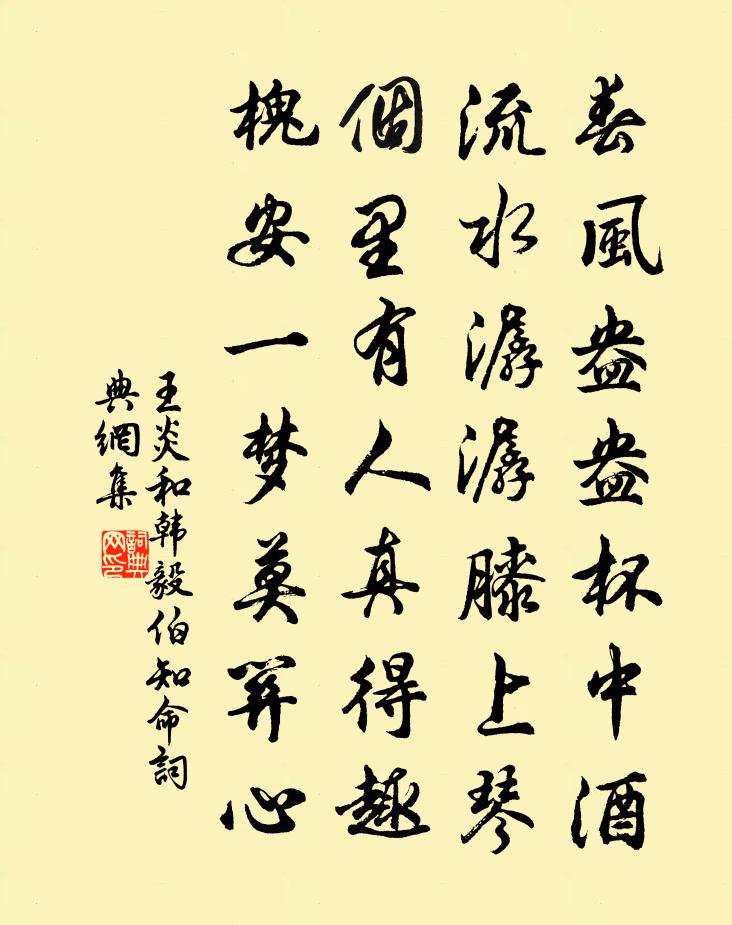 春風盎盎杯中酒
流水潺潺膝上琴
個里有人真得趣
槐安一梦莫关心
王炎和韩毅伯知命詞
典網集
詞典
网印